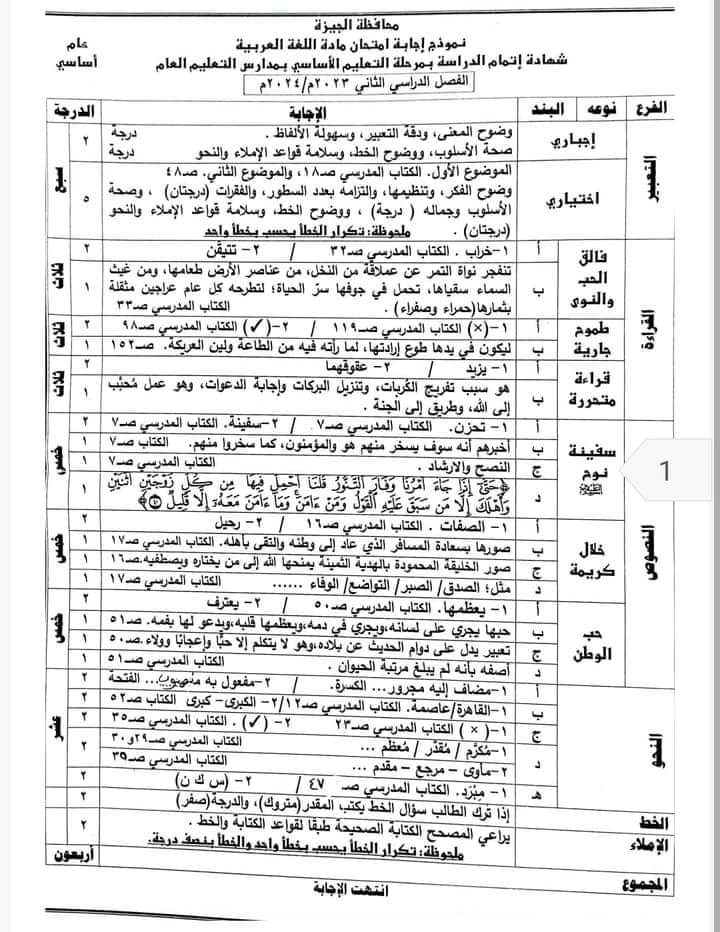 محافظة الجيزة
نموذج إجابة امتحان مادة اللغة العربية
عام
شهادة إتمام الدراسة بمرحلة التعليم الأساسي بمدارس التعليم العام
أساسي
الفصل الدراسي الثاني ٢٠٢٣م/٢٠٢٤م
الفرع نوعه البند الإجابة الدرجة
التعبير
إجباري
وضوح المعنى، ودقة التعبير، وسهولة الألفاظ . درجة ٢
صحة الأسلوب، ووضوح الخط، وسلامة قواعد الإملاء والنحو درجة
سبع
اختياري
الموضوع الأول. الكتاب المدرسي صـ١٨، والموضوع الثاني. صـ٤٨
وضوح الفكر، وتنظيمها، والتزامه بعدد السطور، والفقرات (درجتان) ، وصحة ٥
الأسلوب وجماله ( درجة) ، ووضوح الخط، وسلامة قواعد الإملاء والنحو
(درجتان) . ملحوظة: تكرار الخطأ يحسب بخطأ واحد
القراءة
فالق الحب والنوى
أ ١- خراب . الكتاب المدرسي صـ٣٢ / ٢- تتيقّن ٢
ثلاث
ب تنفجر نواة التمر عن عملاقة من النخل، من عناصر الأرض طعامها، ومن غيث ١
السماء سقياها، تحمل في جوفها سرّ الحياة؛ لتطرحه كل عام عراجين مثقلة
بثمارها(حمراء وصفراء) . الكتاب المدرسي صـ٣٣
طموح جارية
أ ١- (×) الكتاب المدرسي صـ١١٩ / ٢-(✓) الكتاب المدرسي صـ٩٨ ٢
ثلاث
ب ليكون في يدها طوع إرادتها، لما رأته فيه من الطاعة ولين العريكة. صـ١٥٢ ١
قراءة متحررة
أ ١- يزيد / ٢- عقوقهما ٢
ثلاث
ب هو سبب تفريج الكُربات، وتنزيل البركات وإجابة الدعوات، وهو عمل مُحبَّب ١
إلى الله، وطريق إلى الجنة .
النصوص
سفينة نوح
أ ١- تحزن. الكتاب المدرسي صـ٧ / ٢-سفينة. الكتاب المدرسي صـ٧ ٢
خمس
ب أخبرهم أنه سوف يسخر منهم هو والمؤمنون، كما سخروا منهم. الكتاب صـ٧ ١
ج النصح والارشاد . الكتاب المدرسي صـ٧ ١
د ﴿حَتَّىٰ إِذَا جَاءَ أَمْرُنَا وَفَارَ التَّنُّورُ قُلْنَا احْمِلْ فِيهَا مِن كُلٍّ زَوْجَيْنِ اثْنَيْنِ ١
وَأَهْلَكَ إِلَّا مَن سَبَقَ عَلَيْهِ الْقَوْلُ وَمَنْ ءَامَنَ وَمَا ءَامَنَ مَعَهُ إِلَّا قَلِيلٌ﴾
خلال كريمة
أ ١- الصفات . الكتاب المدرسي صـ١٦ / ٢- رحيل ٢
خمس
ب صورها بسعادة المسافر الذي عاد إلى وطنه والتقى بأهله. الكتاب صـ١٧ ١
ج صور الخليقة المحمودة بالهدية الثمينة يمنحها الله إلى من يختاره ويصطفيه.صـ١٦ ١
د مثل؛ الصدق/ الصبر/ التواضع/ الوفاء ...... الكتاب المدرسي صـ١٧ ١
حب الوطن
أ ١- يعظمها. الكتاب المدرسي صـ٥٠ / ٢- يعترف ٢
خمس
ب حبها يجري على لسانه،ويجري في دمه،ويعظمها قلبه،ويدعو لها بفمه. صـ٥١ ١
ج تعبير يدل على دوام الحديث عن بلاده،وهو لا يتكلم إلا حبًّا وإعجابًا وولاء.صـ٥٠ ١
د أصفه بأنه لم يبلغ مرتبة الحيوان . الكتاب المدرسي صـ٥١ ١
النحو
أ ١-مضاف إليه مجرور... الكسرة. / ٢-مفعول به منصوب... الفتحة ٢
ب ١-القاهرة/عاصمة. الكتاب المدرسي صـ٢/١٢- الكبرى- كبرى الكتاب صـ٥٢ ٢
ج ١-( × ) الكتاب المدرسي صـ٢٣ ٢- (✓) . الكتاب المدرسي صـ٣٥ ٢
عشر
د ١-مُكرَّم / مُقدَّر / مُعظَّم ... الكتاب المدرسي صـ٢٩و٣٠ ٢
٢-مأوى - مرجع - مقدم ... الكتاب المدرسي صـ٣٥
هـ ١- مِبْرَد. الكتاب المدرسي صـ ٤٧ / ٢- (س ك ن) ٢
الخط إذا ترك الطالب سؤال الخط يكتب المقدر(متروك)، والدرجة(صفر) ٢
الإملاء يراعي المصحح الكتابة الصحيحة طبقًا لقواعد الكتابة والخط . ٢
ملحوظة: تكرار الخطأ يحسب بخطأ واحد والخطأ بنصف درجة.
المجموع انتهت الإجابة أربعون
1